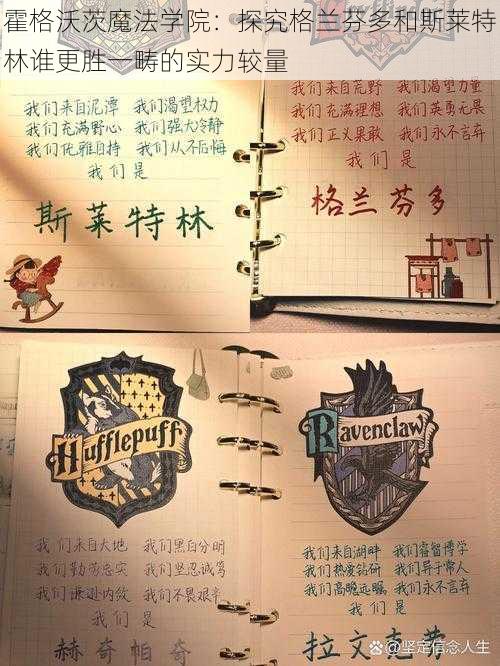 霍格沃茨魔法学院：探究格兰芬多和斯莱特
林谁更胜一畴的实力较量
我们来自泥潭 我们渴望权力
我们充满野心 我们强大冷静
我们优雅自持 我们从不后悔
我们是
斯莱特林
我们来自荒野 我们渴望力量
我们充满理想 我们英勇无畏
我们正义果敢 我们永不言弃
我们是
格兰芬多
Hufflepuff
我们来自大地 我们黑白分明
我们勤劳忠实 我们坚忍诚笃
我们谦逊内敛 我们不畏艰辛
我们是
赫奇帕奇
Ravenclaw
我们来自湖畔 我们睿智博学
我们热爱钻研 我们异于常人
我们高瞻远瞩 我们永不言弃
我们是
拉文克劳
@坚定信念人生